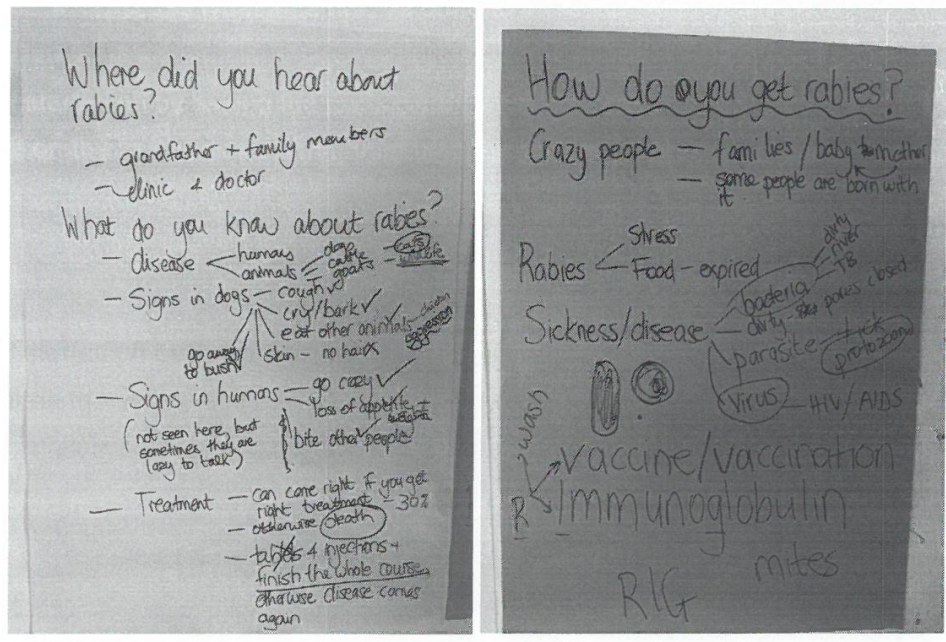 Where did you hear about
rabies?
— grandfather + family members
— clinic & doctor
What do you know about rabies?
— disease
humans
animals
dogs
cattle
goats
cats
wildlife
— Signs in dogs — cough ✓
cry/bark ✓
eat other animals - chicken
aggression
skin — no hair x
go away
to bush
— Signs in humans — go crazy ✓
loss of appetite +
weight
bite other people
(not seen here, but
sometimes they are
lazy to talk)
— Treatment — can come right if you get
right treatment — 30%
— otherwise death
— tablets & injections +
finish the whole course,
otherwise disease comes
again
How do you get rabies?
Crazy people — families / baby mother
— some people are born with
it
Rabies
Stress
Food — expired
Sickness/disease
bacteria
dirty
river
TB
dirty - pores closed
parasite - tick
protozoa
Virus — HIV / AIDS
wash
R
Vaccine/vaccination
Immunoglobulin
RIG
mites